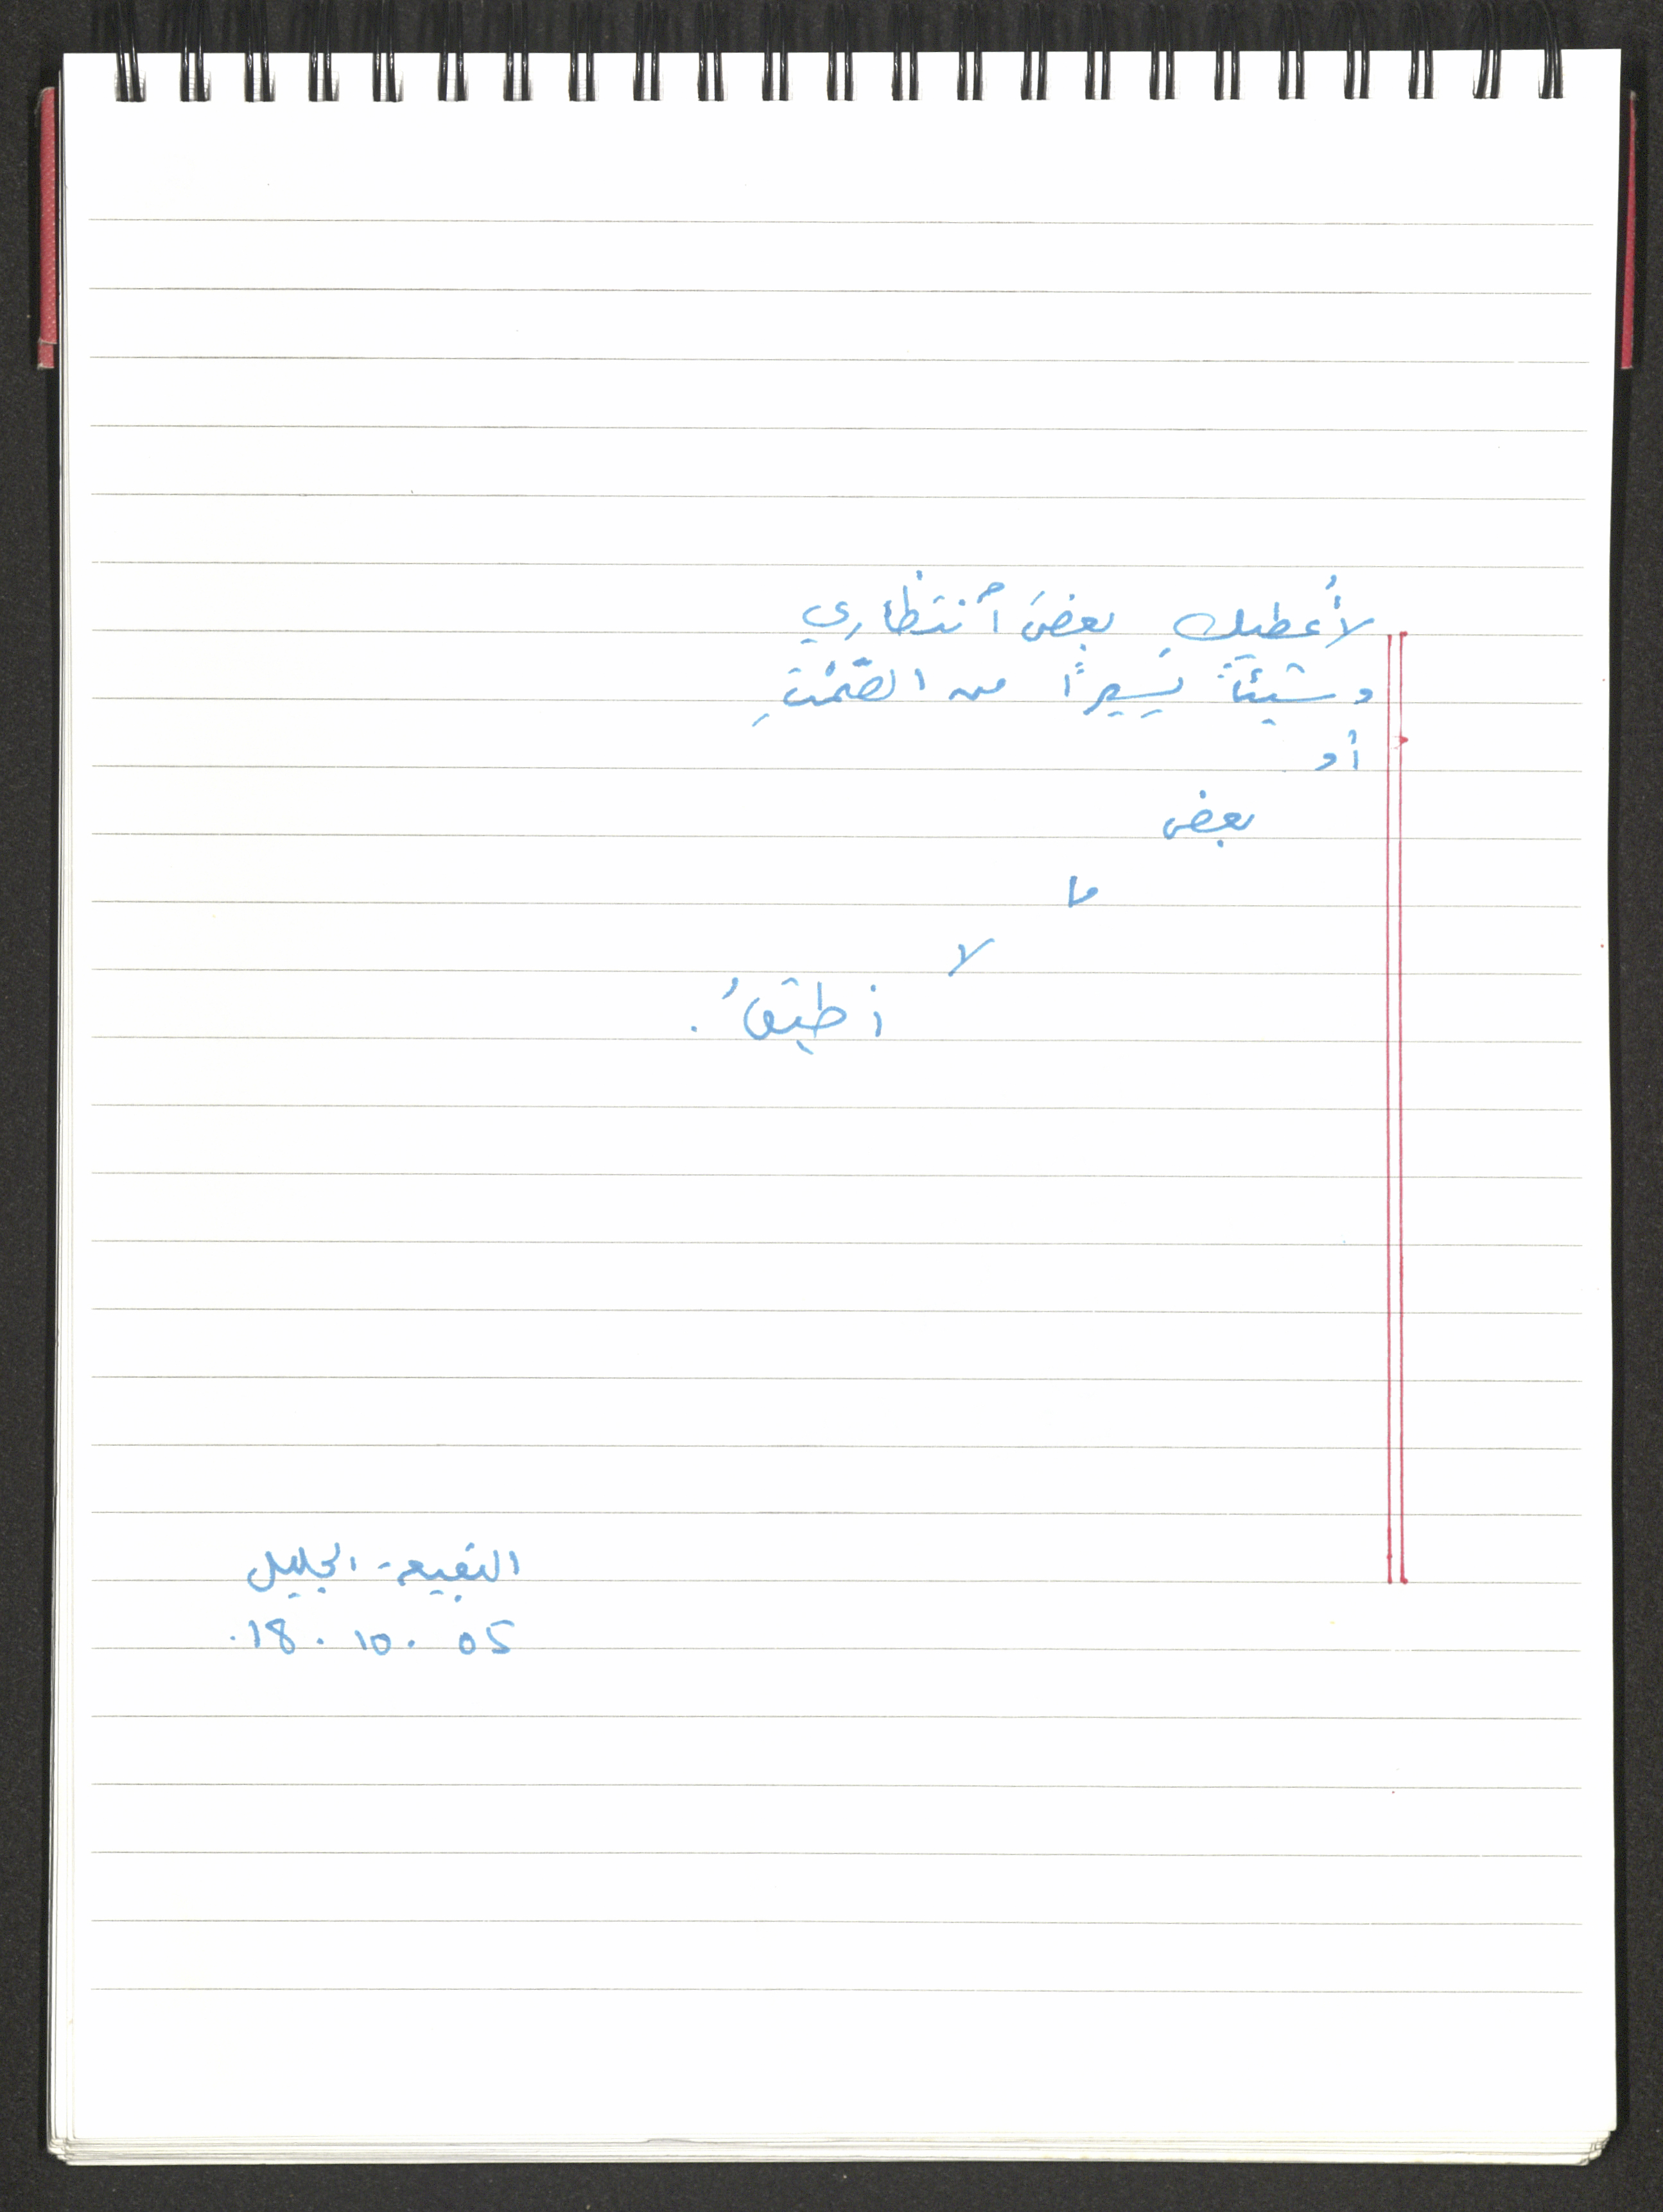 لأُعطيكِ بعضَ ٱنتظاري
و شيئاً يَسيراً من الصّمْتِ
أو
بعض
ما
لا
أطيقُ .
البقيعة - الجليل
18 . 10 . 05 .